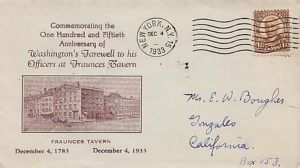 Commemorating the
One Hundred and Fiftieth
Anniversary of
Washington's Farewell to his
Officers at Fraunces Tavern
FRAUNCES TAVERN
December 4, 1783 December 4, 1933
NEW YORK, N.Y. 15
DEC 4
1933
Mr. E. W. Bougher
Gonzales
California.
Box 153.